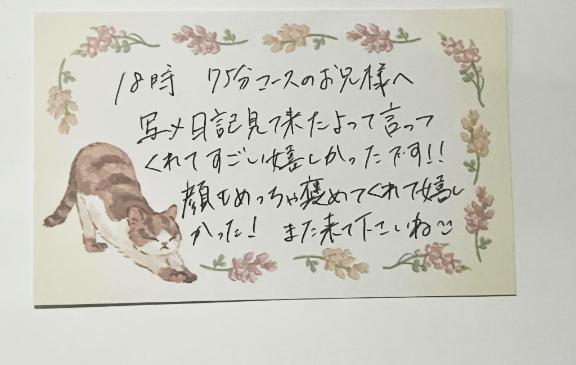 18時 75分コースのお兄様へ
写メ日記見て来たよって言って
くれてすごい嬉しかったです!!
顔もめっちゃ褒めてくれて嬉し
かった! また来て下さいね